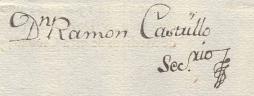 Dn. Ramon Castillo
Sec.rio